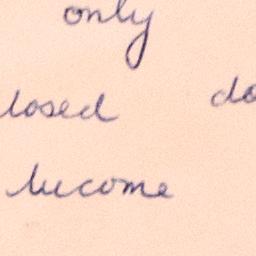 only
losed do
become